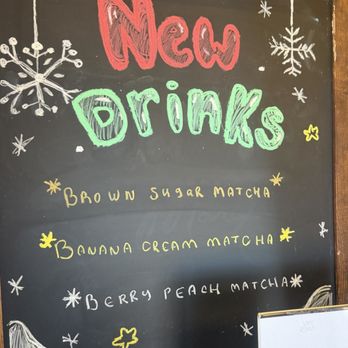 New
Drinks
BROWN SUGAR MATCHA
BANANA CREAM MATCHA
BERRY PEACH MATCHA